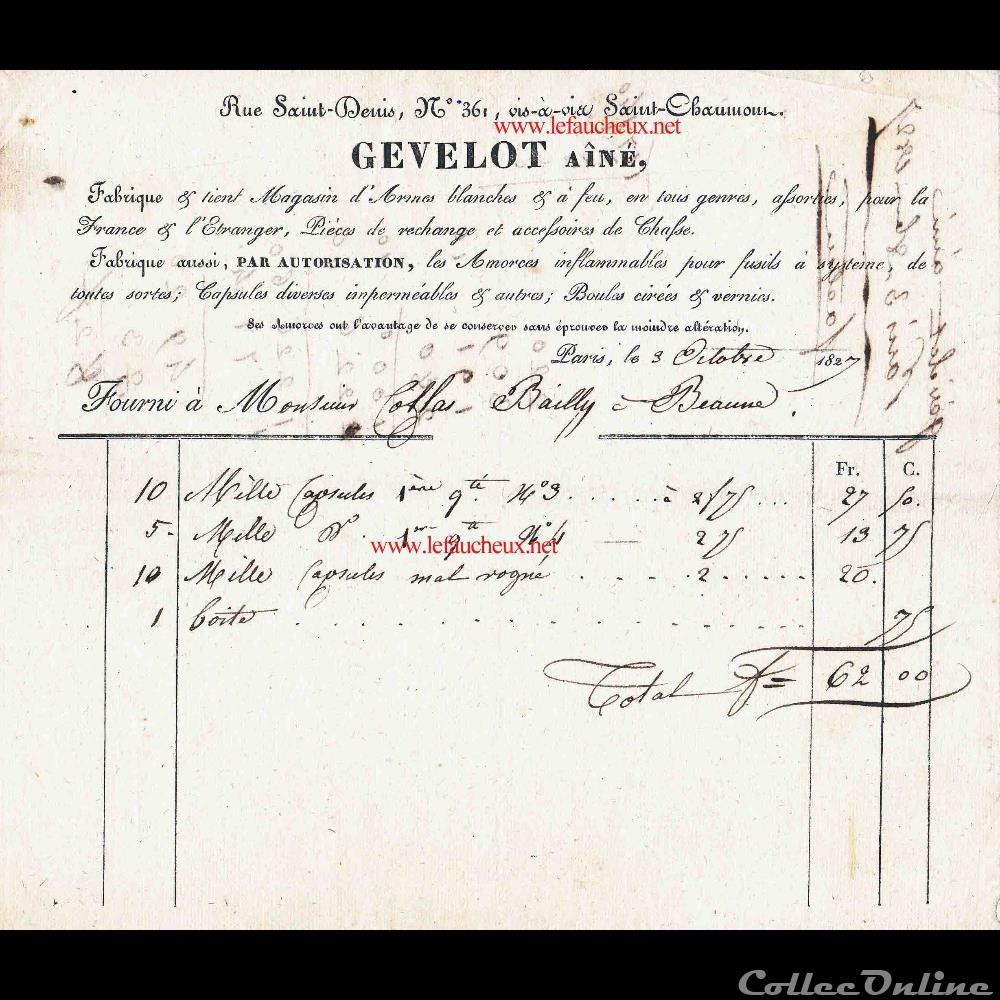 Rue Saint-Denis, N° 361, vis-à-vis Saint-Chaumont.
www.lefaucheux.net
GEVELOT AÎNÉ,
Fabrique & tient Magasin d'Armes blanches & à feu, en tous genres, assorties, pour la
France & l'Etranger, Pièces de rechange et accessoires de Chasse.
Fabrique aussi, PAR AUTORISATION, les Amorces inflammables pour fusils à système, de
toutes sortes; Capsules diverses imperméables & autres; Boules cirées & vernies.
Ses Amorces ont l'avantage de se conserver sans éprouver la moindre altération.
Paris, le 3 Octobre 1827
Fourni à Monsieur Bailly à Beaune.
Fr. C.
10 Mille Capsules 1ère qté. N° 3 ..... à 2f 75 ... 27 50.
5 - Mille do. 1ere qté N° 4 — 2 75 13 75
www.lefaucheux.net
10 Mille Capsules mal rogné .... 2 ..... 20.
1 boite .............. 75
Total f = 62 00
CollecOnline